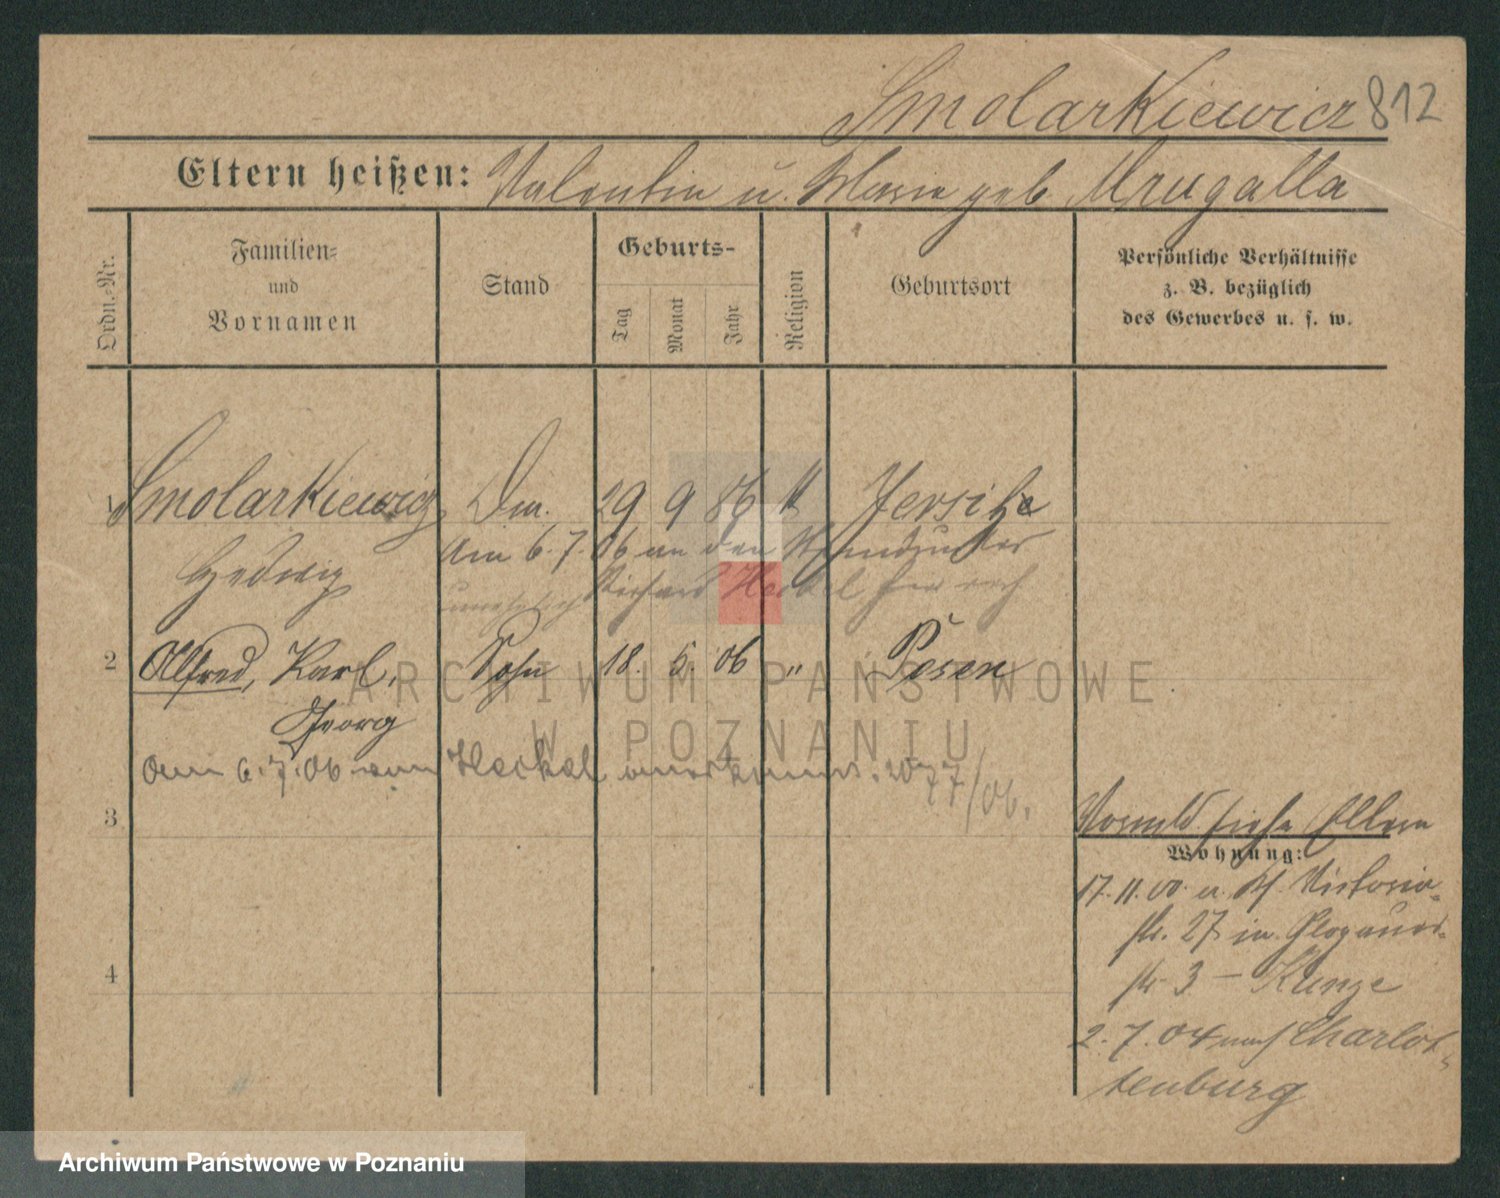 Smolarkiewicz 812
Eltern heißen: Valentin u. Marie geb Mrugalla
Ordn.-Nr.
Familien-
und
Vornamen
Stand
Geburts-
Tag
Monat
Jahr
Religion
Geburtsort
Persönliche Verhältnisse
z. B. bezüglich
des Gewerbes u. s. w.
1 Smolarkiewicz Dm. 29 9 86 k Jersitz
Hedwig
Am 6.7.06 an den
Richard Heckel
2 Alfred, Karl, Sohn 18. 5. 06 " Posen
Georg
Am 6.7.06 vom Heckel anerkannt. 2077/06.
3
4
siehe Eltern
Wohnung:
17.11.00. a. Bf. Victoria-
str. 27 in Glogauer-
str 3 – Kunze
2.7.04 nach Charlot-
tenburg
ARCHIWUM PAŃSTWOWE
W POZNANIU
Archiwum Państwowe w Poznaniu